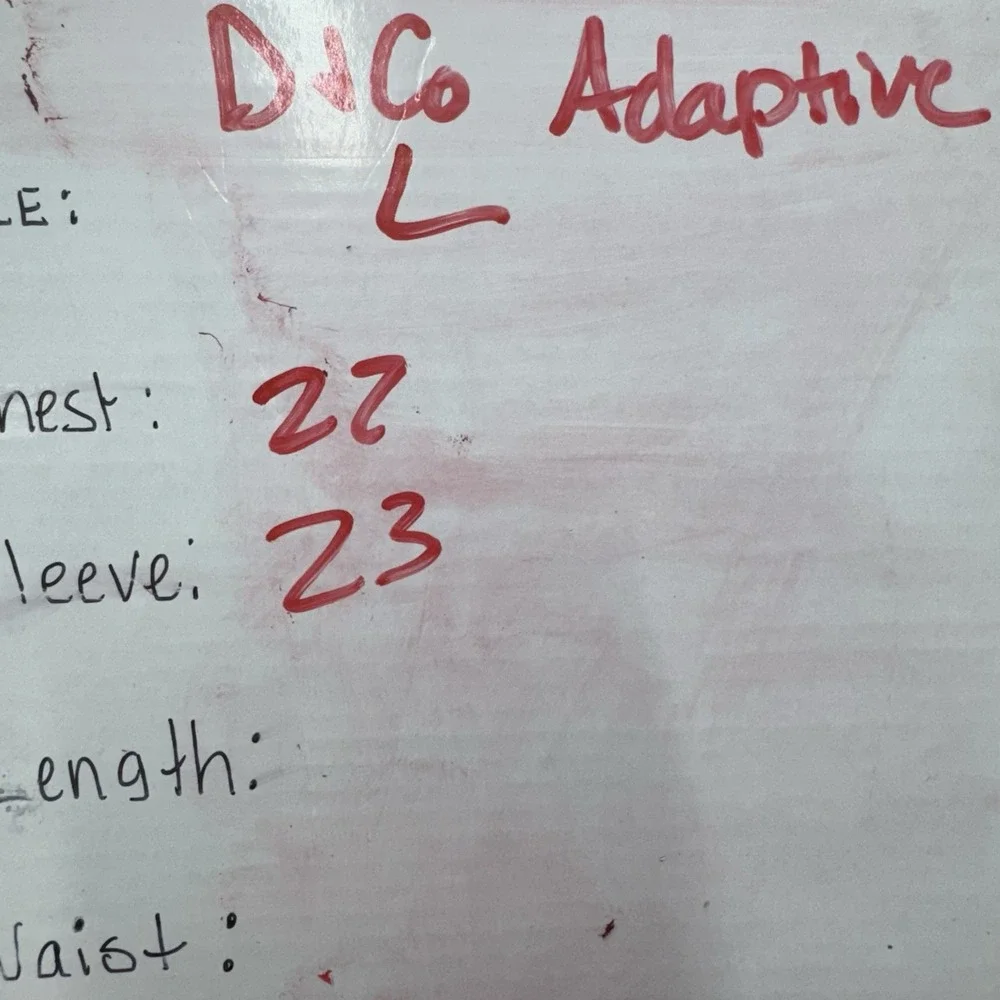 D+Co Adaptive
LE: L
hest: 22
leeve: 23
Length:
Waist: